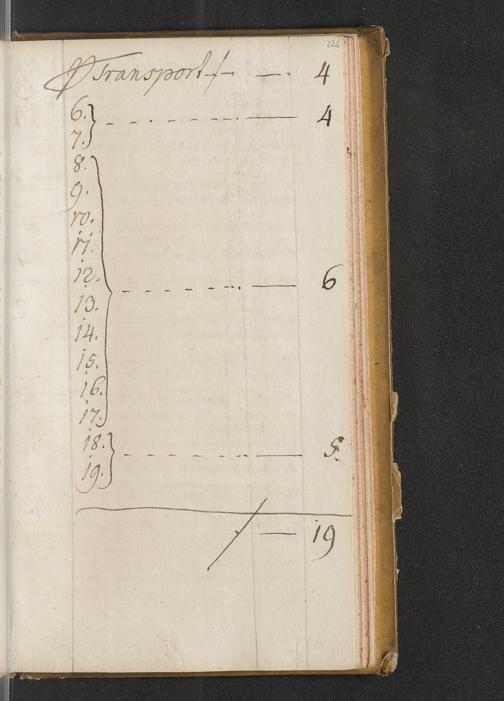 226
Transport — 4
6.
7. } — 4
8.
9.
10.
11.
12. — 6
13.
14.
15.
16.
17.
18.
19. } — 5.
— 19